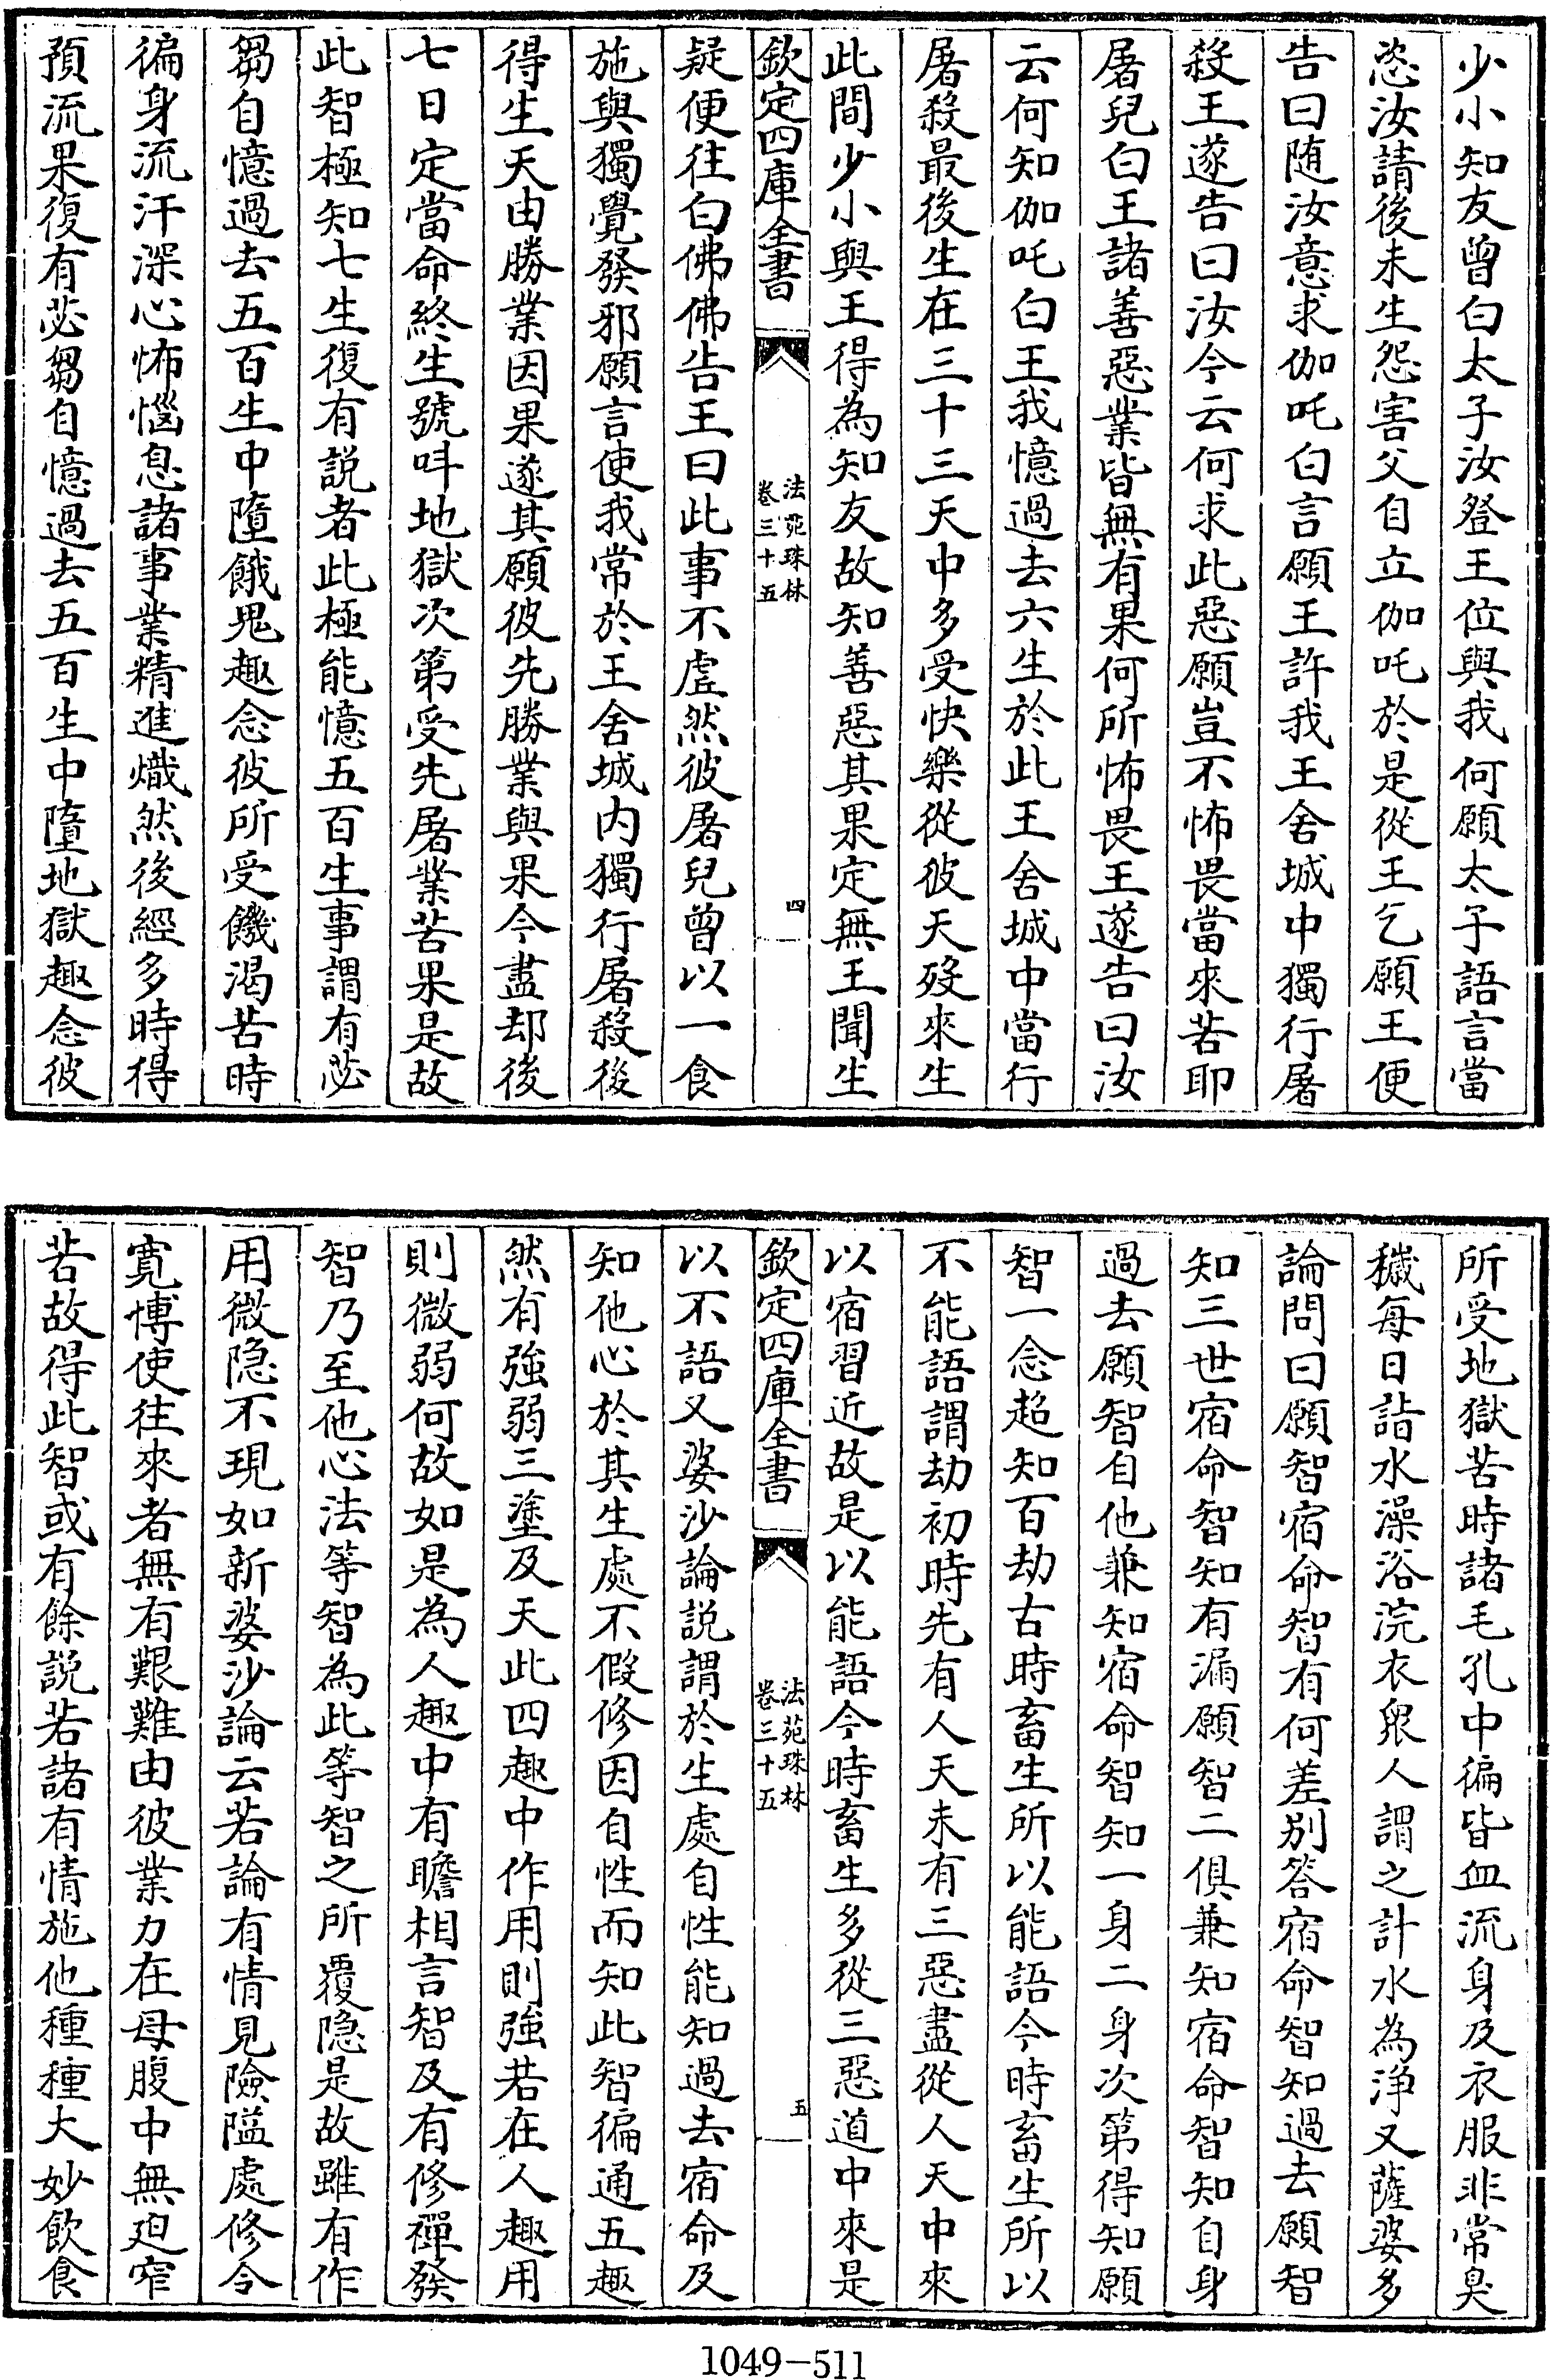 少小知友曾白太子汝登王位與我何願太子語言當
恣汝請後未生怨害父自立伽吒於是從王乞願王便
告曰随汝意求伽吒白言願王許我王舍城中獨行屠
殺王遂告曰汝今云何求此惡願豈不怖畏當來苦耶
屠兒白王諸善惡業皆無有果何所怖畏王遂告曰汝
云何知伽吒白王我憶過去六生於此王舍城中當行
屠殺最後生在三十三天中多受快樂從彼天歿來生
此間少小與王得為知友故知善惡其果定無王聞生
欽定四庫全書
法苑珠林
卷三十五
四
疑便往白佛佛告王曰此事不虛然彼屠兒曾以一食
施與獨覺發邪願言使我常於王舍城内獨行屠殺後
得生天由勝業因果遂其願彼先勝業與果今盡却後
七日定當命終生號呌地獄次第受先屠業苦果是故
此智極知七生復有説者此極能憶五百生事謂有苾
芻自憶過去五百生中墮餓鬼趣念彼所受饑渴苦時
徧身流汗深心怖惱息諸事業精進熾然後經多時得
預流果復有苾芻自憶過去五百生中墮地獄趣念彼
所受地獄苦時諸毛孔中徧皆血流身及衣服非常臭
穢每日詣水澡浴浣衣衆人謂之計水為淨又薩婆多
論問曰願智宿命智有何差别答宿命智知過去願智
知三世宿命智知有漏願智二俱兼知宿命智知自身
過去願智自他兼知宿命智知一身二身次第得知願
智一念超知百劫古時畜生所以能語今時畜生所以
不能語謂劫初時先有人天未有三惡盡從人天中來
以宿習近故是以能語今時畜生多從三惡道中來是
欽定四庫全書
法苑珠林
卷三十五
五
以不語又婆沙論説謂於生處自性能知過去宿命及
知他心於其生處不假修因自性而知此智徧通五趣
然有強弱三塗及天此四趣中作用則強若在人趣用
則微弱何故如是為人趣中有瞻相言智及有修禪發
智乃至他心法等智為此等智之所覆隐是故雖有作
用微隐不現如新婆沙論云若論有情見險隘處修令
寛博使往來者無有艱難由彼業力在母腹中無廹窄
苦故得此智或有餘説若諸有情施他種種大妙飲食
1049-511